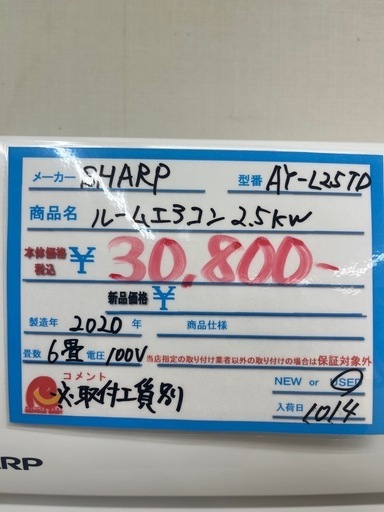 メーカー SHARP 型番 AY-L25TD
商品名 ルームエアコン2.5kW
本体価格 税込 ¥ 30,800-
新品価格 ¥
製造年 2020年 商品仕様
畳数 6畳 電圧 100V 当店指定の取り付け業者以外の取り付けの場合は保証対象外
コメント NEW or USED
※取付工賃別 入荷日 1014
ARP